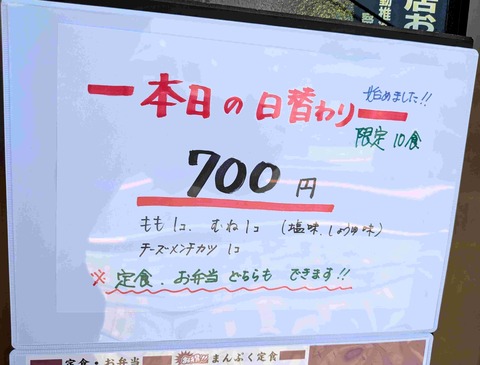 店お
ー本日の日替わりー
始めました!!
限定10食
700円
もも1コ、むね1コ (塩味、しょうゆ味)
チーズメンチカツ 1コ
※定食、お弁当どちらも できます!!
定食・お弁当
まんぷく定食